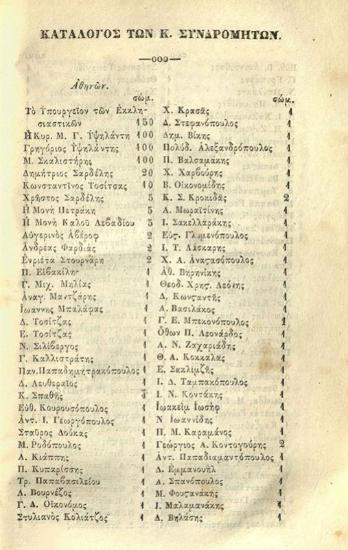 ΚΑΤΑΛΟΓΟΣ ΤΩΝ Κ. ΣΥΝΔΡΟΜΗΤΩΝ.
Ἀθηνῶν.
σώμ.
Τὸ Ὑπουργεῖον τῶν Ἐκκλη-
σιαστικῶν 150
Ἡ Κυρ. Μ. Γ. Ὑψηλάντη 100
Γρηγόριος Ὑψηλάντης 100
Μ. Σκαλιστήρης 100
Δημήτριος Σαρδέλης 20
Κωνσταντῖνος Τοσίτσας 10
Χρῆστος Σαρδέλης 5
Ἡ Μονὴ Πετράκη 5
Ἡ Μονὴ Καλοῦ Λεβαδίου 5
Αὐγερινὸς Ἀβέρος 2
Ἀνδρέας Φαρδιάς 2
Ἐνριέτα Στουρνάρη 2
Π. Εἰβακίλη 1
Γ. Μιχ. Μηλίας 1
Ἀναγ. Μαντζάρης 1
Ἰωάννης Μπαλάφας 1
Δ. Τοσίτζας 1
Ε. Τοσίτζας 1
Ν. Σιλίβεργος 1
Γ. Καλλιστράτης 1
Παν. Παπαδημητρακόπουλος 1
Δ. Λευθεραῖος 1
Κ. Σπαθῆς 1
Εὐθ. Κουρουσόπουλος 1
Ἀντ. Ι. Γεωργόπουλος 1
Σταῦρος Δούκας 1
Μ. Ροδόπουλος 1
Α. Κιάππης 1
Π. Κυπαρίσσης 1
Τρ. Παπαβασιλείου 1
Α. Βουρνέζος 1
Γ. Α. Οἰκονόμος 1
Στυλιανὸς Κολιάτζος 1
σώμ.
Χ. Κρασᾶς 1
Δ. Στεφανόπουλος 1
Δημ. Βίκης 1
Πολύδ. Ἀλεξανδρόπουλος 1
Π. Βαλσαμάκης 1
Χ. Χαρβούρης 1
Β. Οἰκονομίδης 1
Κ. Σ. Κροκιδᾶς 2
Α. Μωραϊτίνης 1
Ι. Σακελλαράκης 1
Εὐς. Γλυμενόπουλος 1
Ι. Τ. Λάσκαρης 1
Χ. Α. Ἀναστασόπουλος 1
Ἀθ. Βηρηνίκης 1
Θεοδ. Χρης. Λεόνης 1
Δ. Κωνσταντῆς 1
Α. Βασιλάκος 1
Γ. Ε. Μπεκονόπουλος 1
Ὄθων Π. Λεονάρδος 1
Α. Ν. Ζαχαριάδης 1
Θ. Α. Κοκκαλᾶς 1
Ε. Σακλιμζῆς 1
Ι. Δ. Ταμπακόπουλος 1
Ι. Ν. Κοντάκης 1
Ἰωακεὶμ Ἰωσὴφ 1
Ν Ἰωαννίδης 1
Π. Μ. Καραμάνος 1
Γεώργιος Α. Κοντογούρης 2
Ἀντ. Παπαδιαμαντόπουλος 1
Δ. Ἐμμανουὴλ 1
Α. Σπανόπουλος 1
Μ. Φουσανάκης 1
Ι. Μαλαμανάκης 1
Δ. Βηλάσης 1